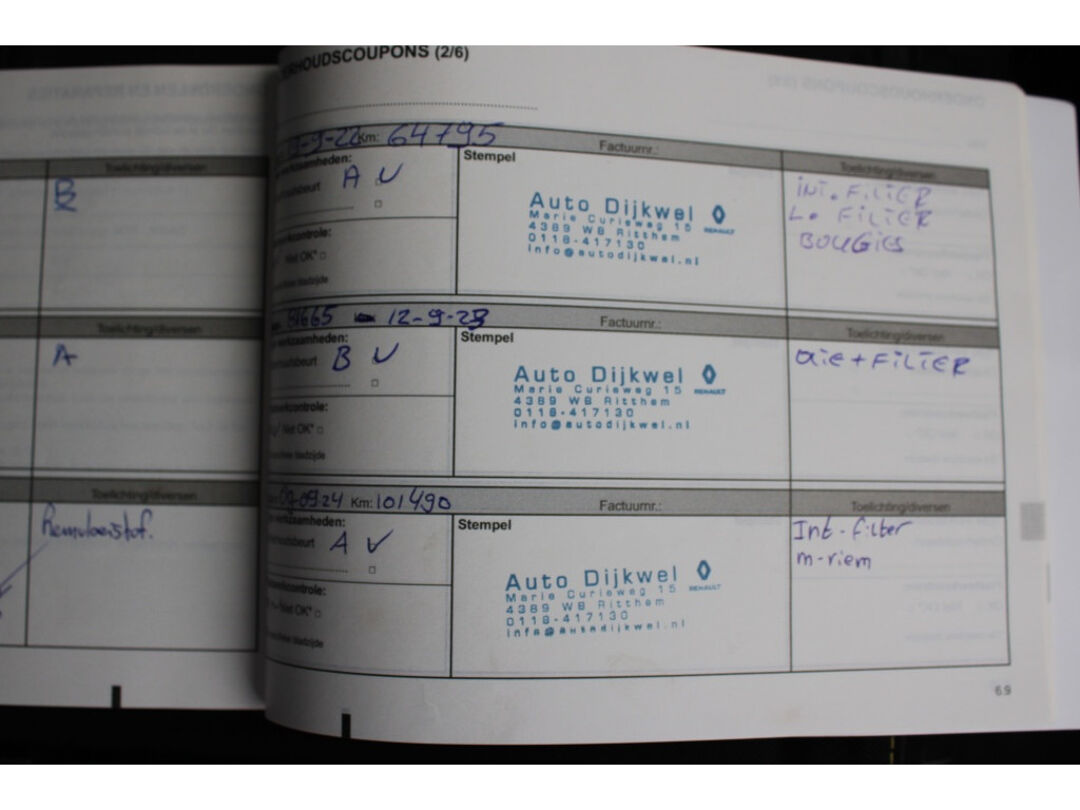 Toelichting/diversen
B
Toelichting/diversen
A
Toelichting/diversen
Remvloeistof.
RHOUDSCOUPONS (2/6)
-9-22 Km: 64795
Factuurnr.:
Toelichting/diversen
werkzaamheden:
beurt A V
Stempel
Auto Dijkwel
RENAULT
Marie Curieweg 15
4389 WB Ritthem
0118-417130
info@autodijkwel.nl
INT. FILTER
L. FILTER
BOUGIES
controle:
Niet OK*
81665 12-9-23
Factuurnr.:
Toelichting/diversen
werkzaamheden:
beurt B V
Stempel
Auto Dijkwel
RENAULT
Marie Curieweg 15
4389 WB Ritthem
0118-417130
info@autodijkwel.nl
OLIE + FILTER
controle:
Niet OK*
09-09-24 Km: 101490
Factuurnr.:
Toelichting/diversen
werkzaamheden:
beurt A V
Stempel
Auto Dijkwel
RENAULT
Marie Curieweg 15
4389 WB Ritthem
0118-417130
info@autodijkwel.nl
Int-filter
m-riem
controle:
Niet OK*
6.9